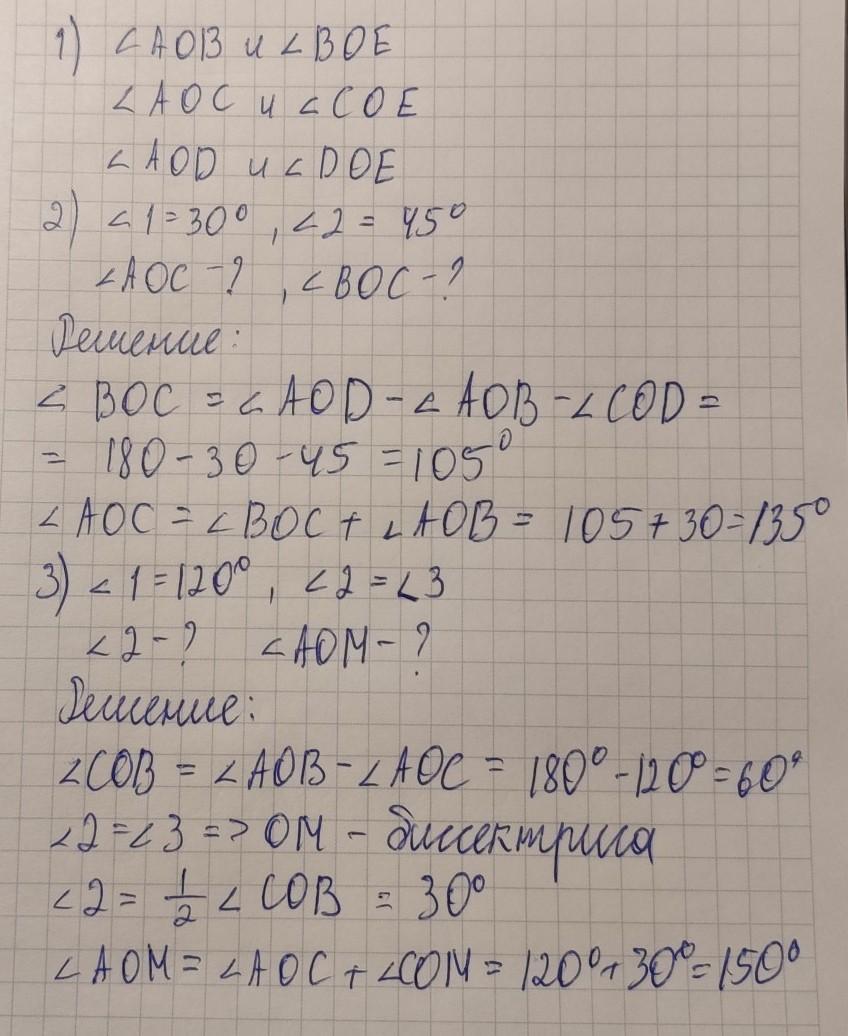 1) ∠AOB и ∠BOE
∠AOC и ∠COE
∠AOD и ∠DOE
2) ∠1=30°, ∠2=45°
∠AOC-?, ∠BOC-?
Решение:
∠BOC = ∠AOD - ∠AOB - ∠COD =
= 180-30-45=105°
∠AOC = ∠BOC + ∠AOB = 105+30=135°
3) ∠1=120°, ∠2=∠3
∠2-? ∠AOM-?
Решение:
∠COB = ∠AOB-∠AOC = 180°-120°=60°
∠2=∠3 => OM - биссектриса
∠2= 1/2 ∠COB = 30°
∠AOM = ∠AOC + ∠COM = 120°+30°=150°